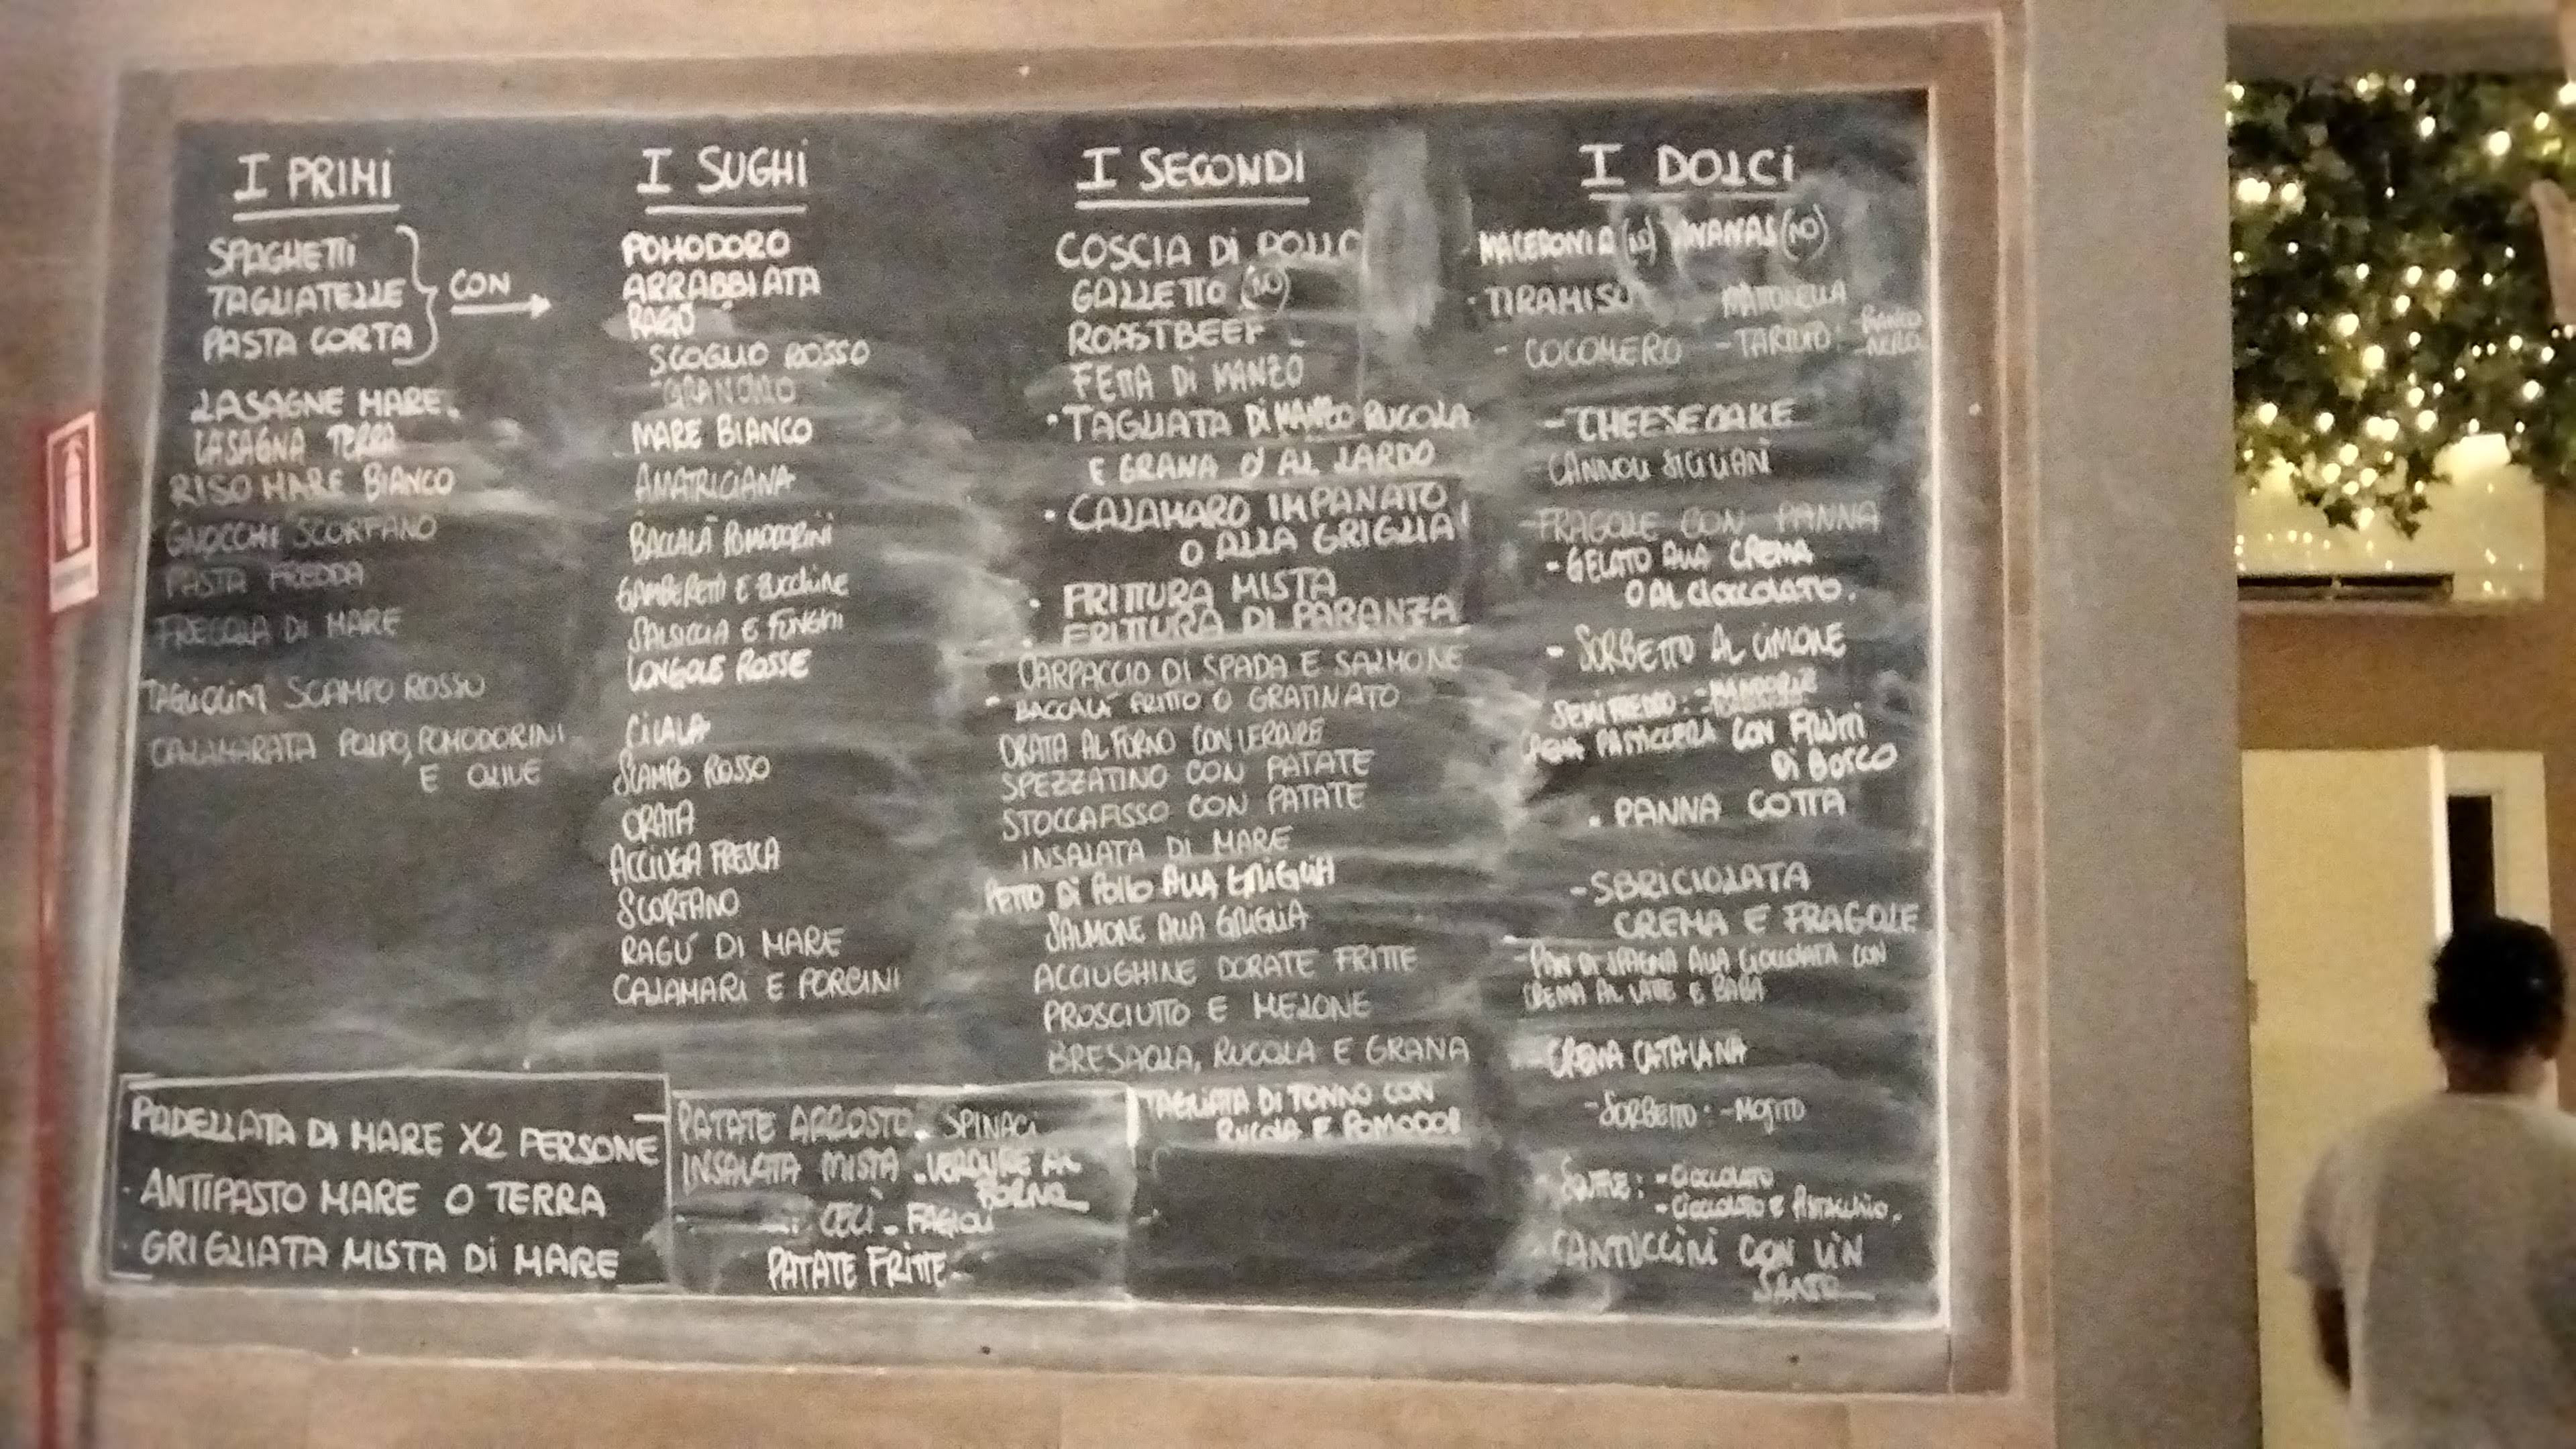 I PRIMI
SPAGHETTI
TAGLIATELLE
PASTA CORTA
CON
LASAGNE MARE.
LASAGNA TERRA
RISO MARE BIANCO
GNOCCHI SCORFANO
PASTA FREDDA
FREGOLA DI MARE
TAGLIOLINI SCAMPO ROSSO
CALAMARATA POLPO, POMODORINI
E OLIVE
I SUGHI
POMODORO
ARRABBIATA
RAGÙ
SCOGLIO ROSSO
GRANCHIO
MARE BIANCO
AMATRICIANA
BACCALÀ POMODORINI
GAMBERETTI E ZUCCHINE
SALSICCIA E FUNGHI
VONGOLE ROSSE
CICALA
SCAMPO ROSSO
ORATA
ACCIUGA FRESCA
SCORFANO
RAGÙ DI MARE
CALAMARI E PORCINI
I SECONDI
COSCIA DI POLLO
GALLETTO (NO)
ROASTBEEF
FETTA DI MANZO
· TAGLIATA DI MANZO RUCOLA
E GRANA O AL LARDO
· CALAMARO IMPANATO
O ALLA GRIGLIA
· FRITTURA MISTA
· FRITTURA DI PARANZA
CARPACCIO DI SPADA E SALMONE
- BACCALÀ FRITTO O GRATINATO
ORATA AL FORNO CON VERDURE
SPEZZATINO CON PATATE
STOCCAFISSO CON PATATE
INSALATA DI MARE
PETTO DI POLLO ALLA GRIGLIA
SALMONE ALLA GRIGLIA
ACCIUGHINE DORATE FRITTE
PROSCIUTTO E MELONE
BRESAOLA, RUCOLA E GRANA
TAGLIATA DI TONNO CON
RUCOLA E POMODORI
I DOLCI
MACEDONIA (NO) ANANAS (NO)
· TIRAMISÙ MATTONELLA
- COCOMERO - TARTUFO: BIANCO
- NERO
- CHEESECAKE
- CANNOLI SICILIANI
- FRAGOLE CON PANNA
- GELATO ALLA CREMA
O AL CIOCCOLATO.
- SORBETTO AL LIMONE
SEMIFREDDO:
CREMA PASTICCERA CON FRUTTI
DI BOSCO
. PANNA COTTA
- SBRICIOLATA
CREMA E FRAGOLE
- PAN DI SPAGNA ALLA CIOCCOLATA CON
CREMA AL LATTE E BABÀ
- CREMA CATALANA
- SORBETTO: - MOJITO
- SOUFFLE: - CIOCCOLATO
- CIOCCOLATO E PISTACCHIO.
CANTUCCINI CON VIN
SANTO
PADELLATA DI MARE X2 PERSONE
· ANTIPASTO MARE O TERRA
· GRIGLIATA MISTA DI MARE
PATATE ARROSTO. SPINACI
INSALATA MISTA . VERDURE AL
FORNO
CECI - FAGIOLI
PATATE FRITTE